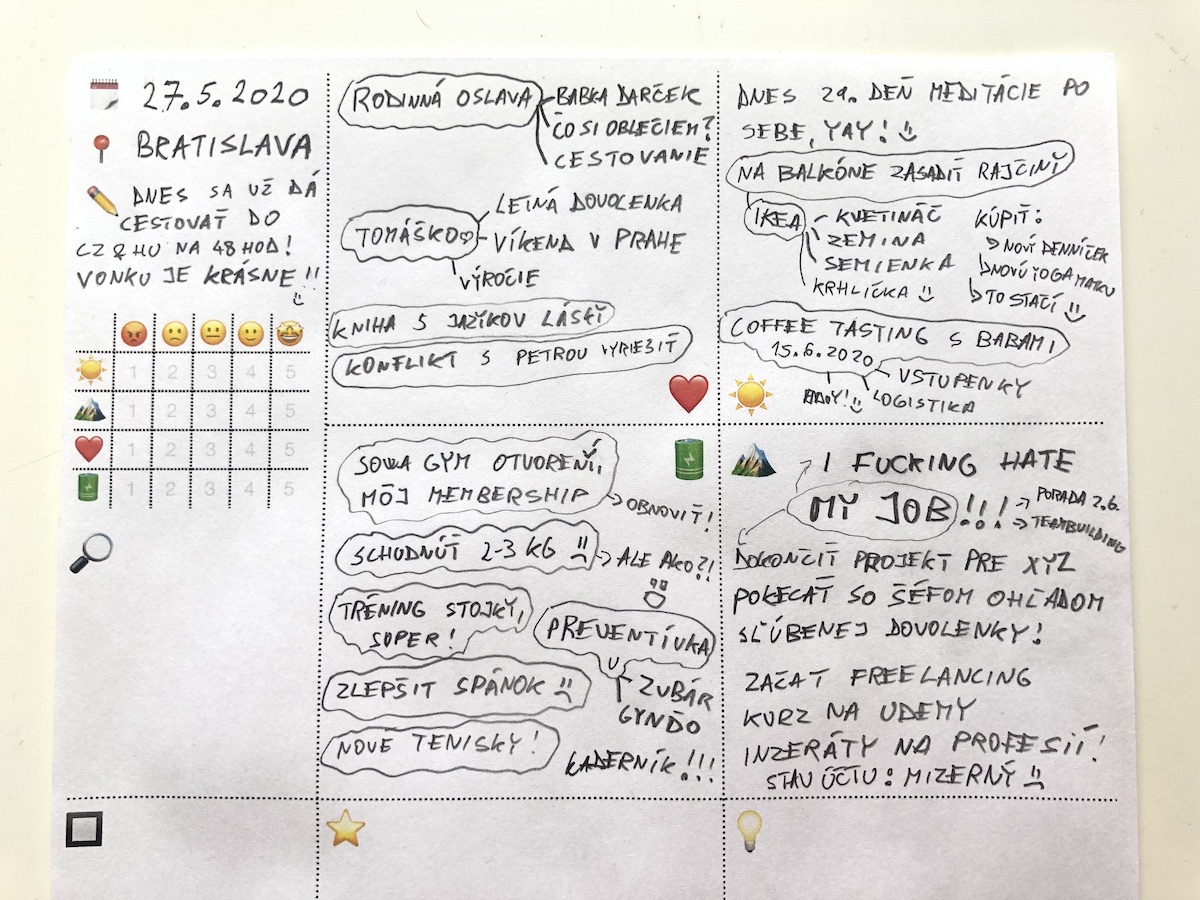 27.5.2020
BRATISLAVA
DNES SA UŽ DÁ
CESTOVAŤ DO
CZ & HU NA 48 HOD!
VONKU JE KRÁSNE!!
1 2 3 4 5
1 2 3 4 5
1 2 3 4 5
1 2 3 4 5
RODINNÁ OSLAVA
BABKA DARČEK
ČO SI OBLEČIEM?
CESTOVANIE
TOMÁŠKO
LETNÁ DOVOLENKA
VÍKEND V PRAHE
VÝROČIE
KNIHA 5 JAZÍKOV LÁSKY
KONFLIKT S PETROU VYRIEŠIŤ
DNES 29. DEŇ MEDITÁCIE PO
SEBE, YAY!
NA BALKÓNE ZASADIŤ RAJČINY
IKEA
KVETINÁČ
ZEMINA
SEMIENKA
KRHLIČKA
KÚPIŤ:
NOVÝ DENNÍČEK
NOVÚ YOGA MATKU
TO STAČÍ
COFFEE TASTING S BABAMI
15.6.2020
VSTUPENKY
LOGISTIKA
SOWA GYM OTVORENÍ,
MÔJ MEMBERSHIP
OBNOVIŤ!
SCHODNÚŤ 2-3 KG
ALE AKO?!
TRÉNING STOJKY,
SUPER!
PREVENTÍVKA
ZUBÁR
GYNDO
ZLEPŠIT SPÁNOK
NOVÉ TENISKY!
KADERNÍK!!!
I FUCKING HATE
MY JOB!!!
PORADA 2.6.
TEAMBUILDING
DOKONČIŤ PROJEKT PRE XYZ
POKECAŤ SO ŠÉFOM OHĽADOM
SĽÚBENEJ DOVOLENKY!
ZAČAT FREELANCING
KURZ NA UDEMY
INZERÁTY NA PROFESII!
STAV ÚČTU: MIZERNÝ